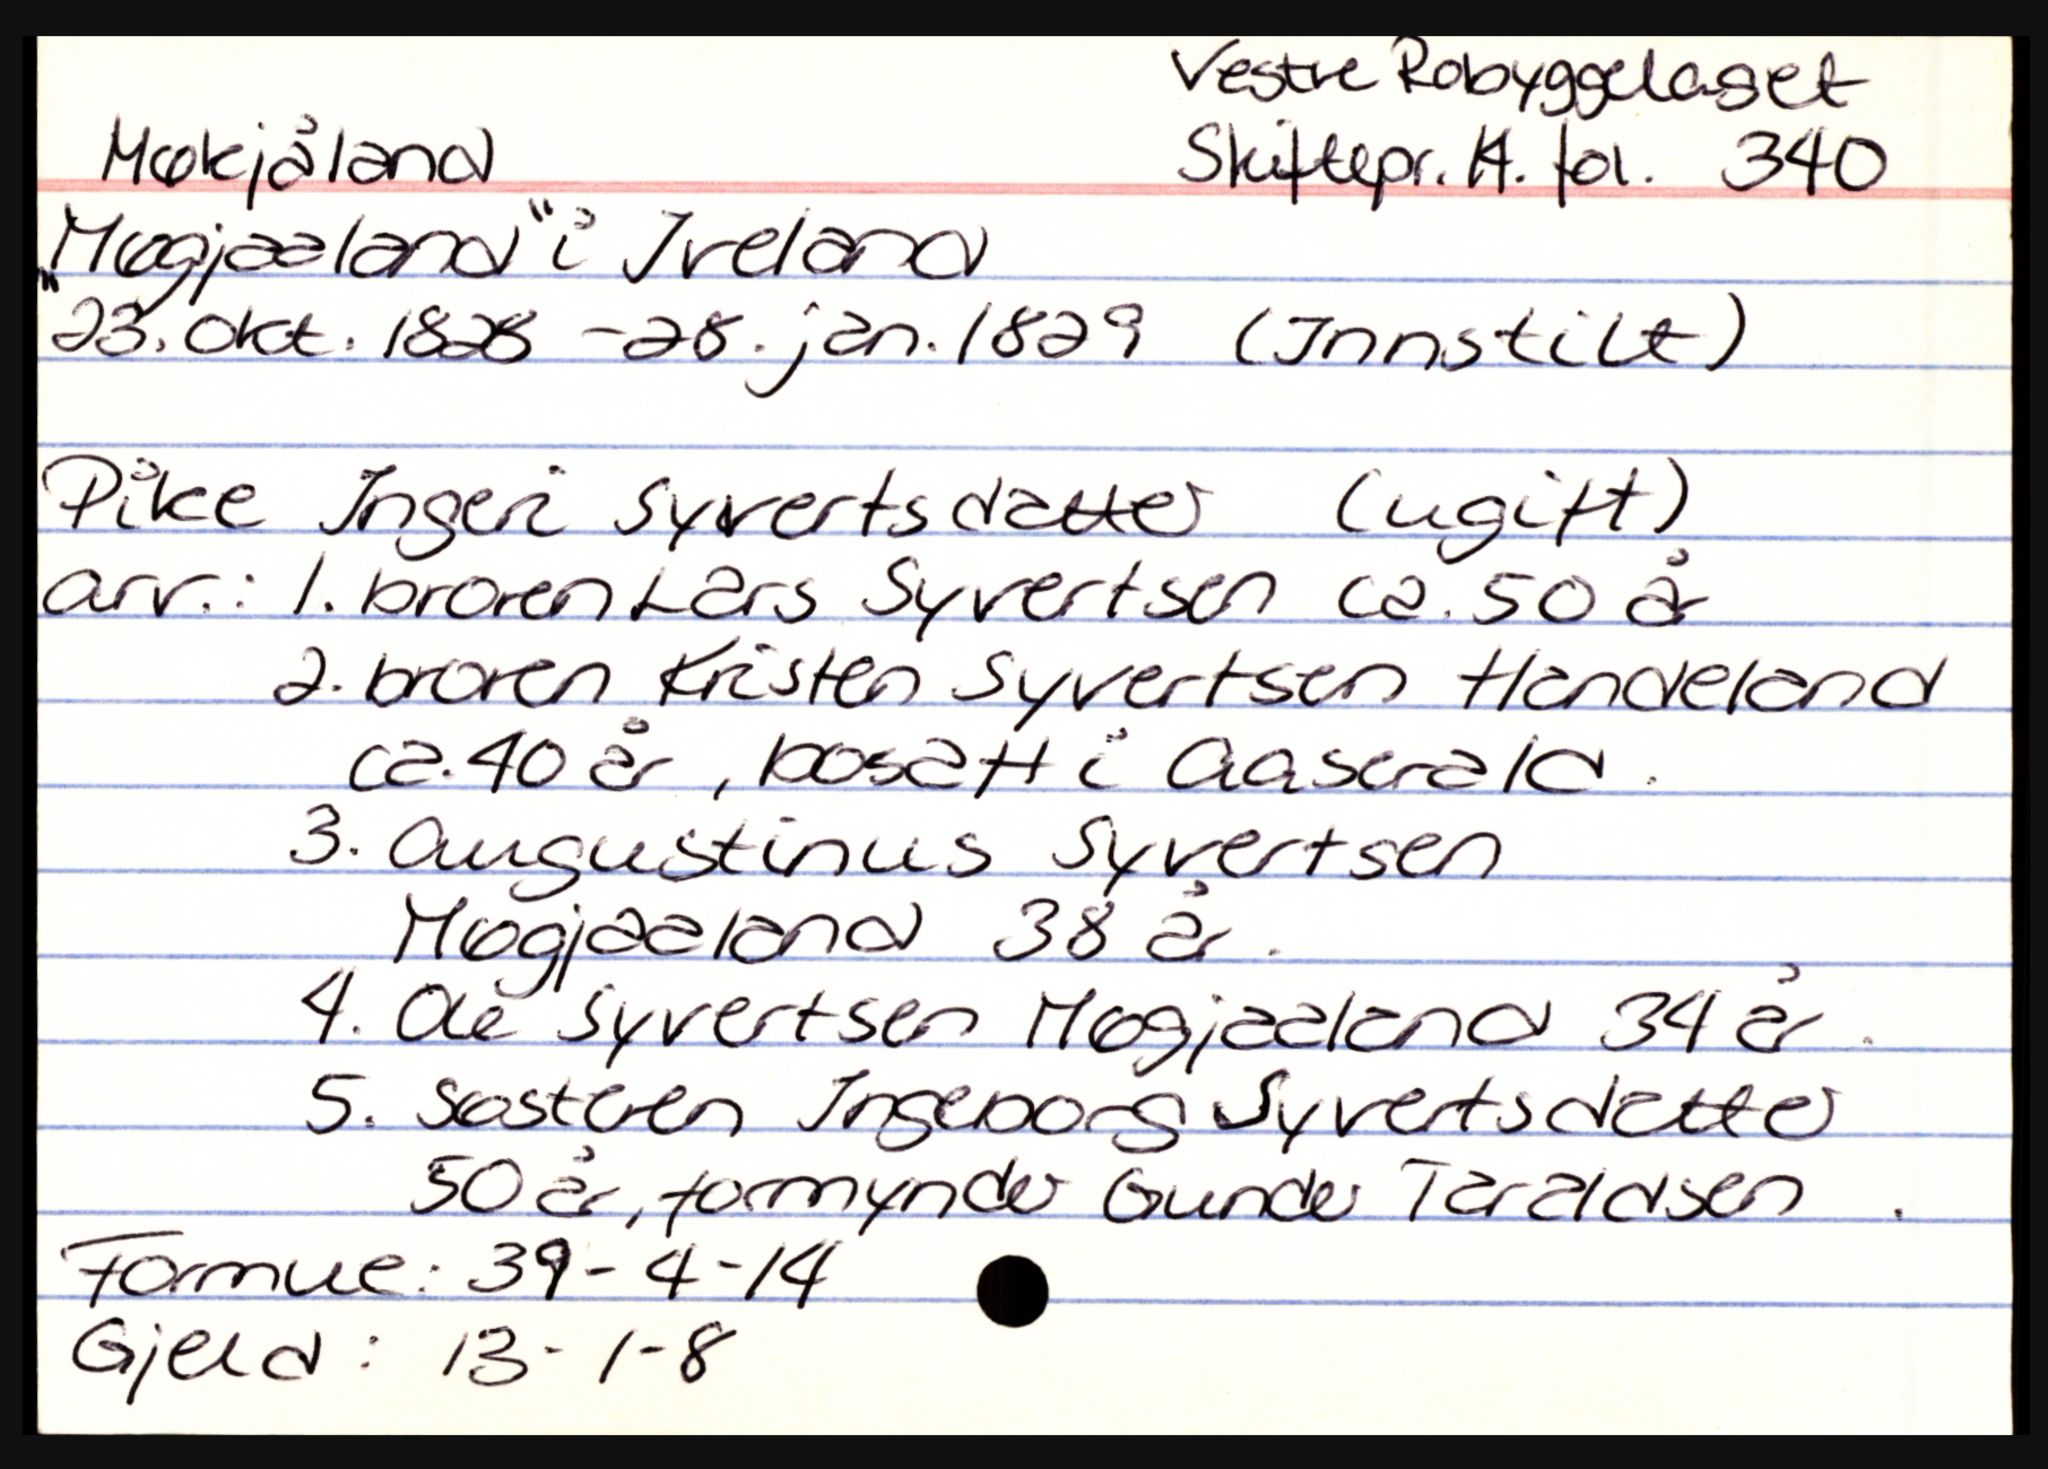 Vestre Robyggelaget
Møkjåland
Skiftepr. 14. fol. 340
„Møgjaaland“ i Iveland
23. okt. 1828 - 28. jan. 1829 (Innstilt)
Pike Ingeri Syvertsdatter (ugift)
arv.: 1. broren Lars Syvertsen ca. 50 år
2. broren Kristen Syvertsen Handeland
ca. 40 år, bosatt i Aaserald.
3. Augustinus Syvertsen
Møgjaaland 38 år.
4. Ole Syvertsen Møgjaaland 34 år.
5. søsteren Ingeborg Syvertsdatter
50 år, formynder Gunder Taraldsen.
Formue: 39-4-14
Gjeld: 13-1-8